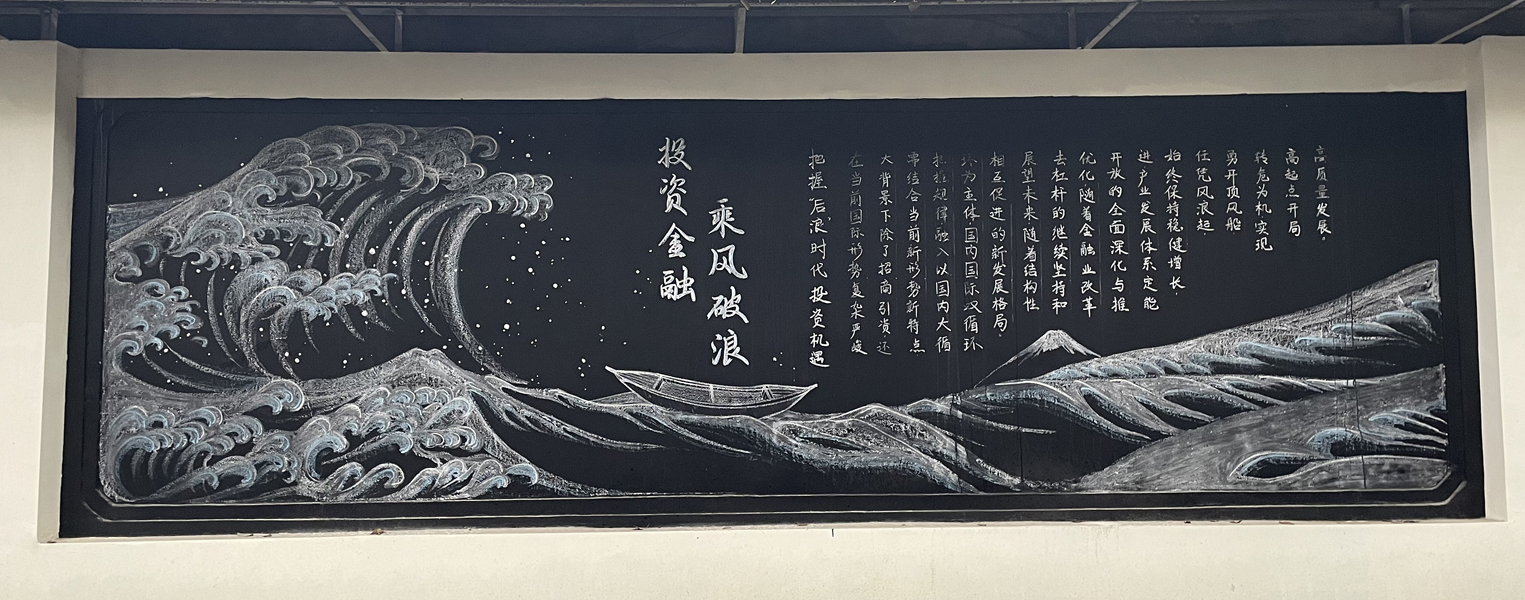 投资金融
乘风破浪
把握“后浪”时代 投资机遇
在当前国际形势复杂严峻
大背景下除了招商引资还
需结合当前新形势新特点
把握规律融入以国内大循
环为主体国内国际双循环
相互促进的新发展格局.
展望未来随着结构性
去杠杆的继续坚持和
优化随着金融业改革
开放的全面深化与推
进产业发展体系定能
始终保持稳健增长.
任凭风浪起
勇开顶风船
转危为机实现
高起点开局
高质量发展。